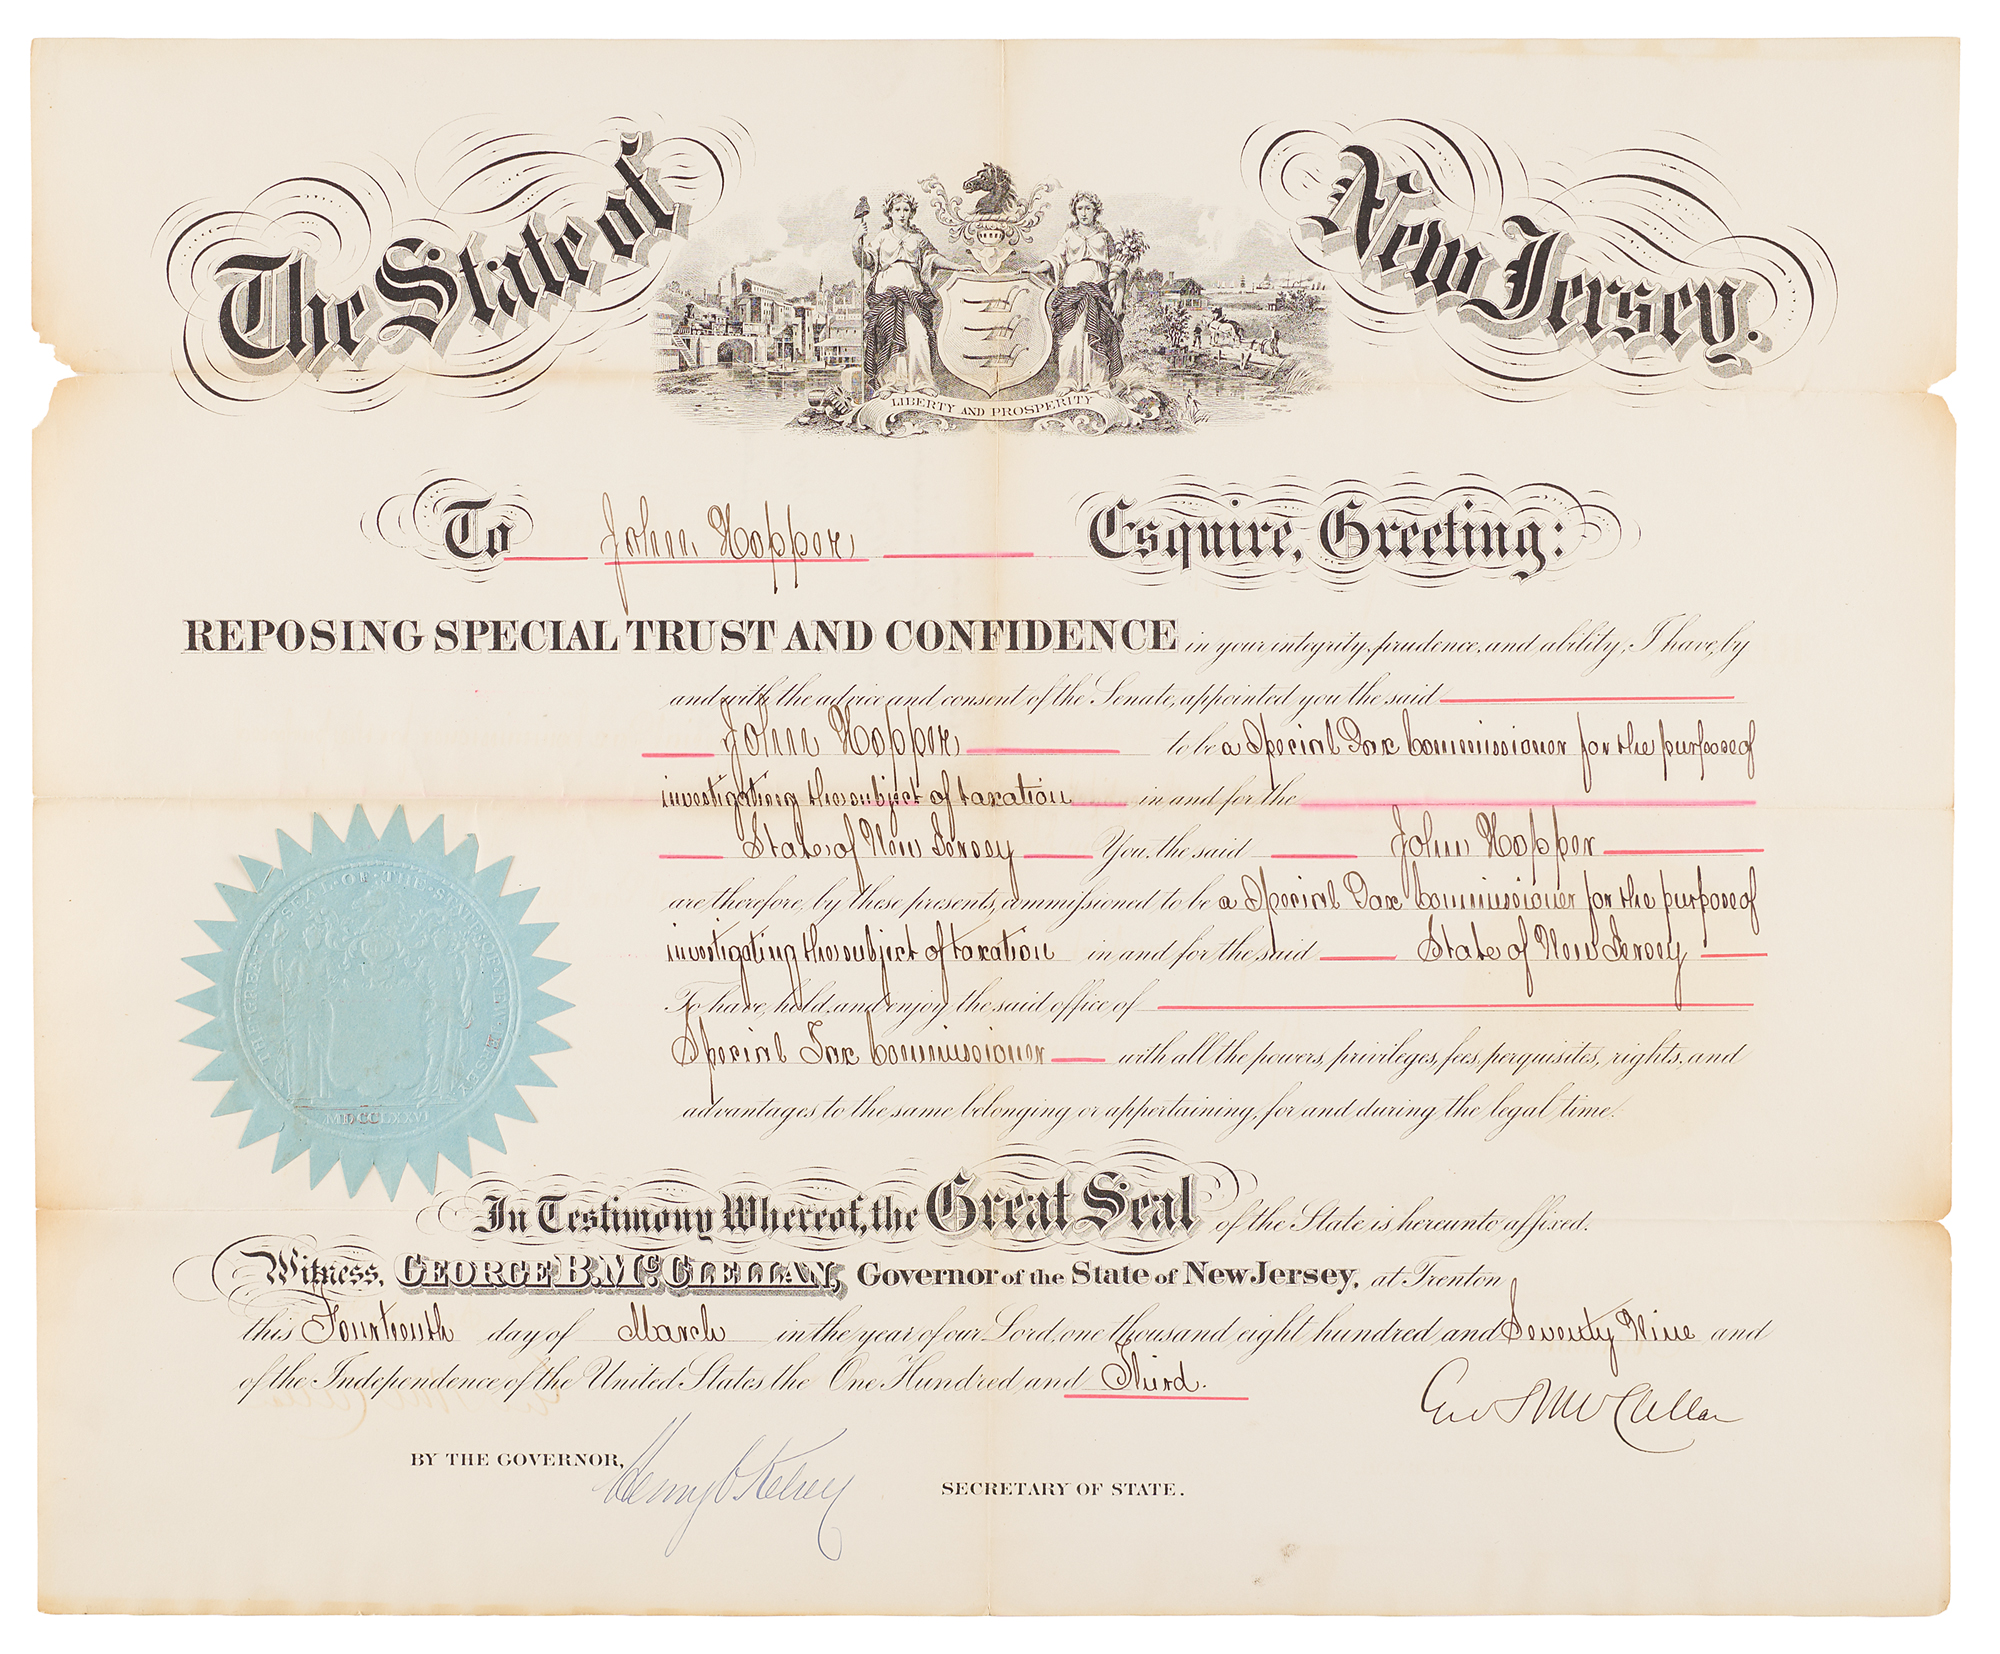 The State of New Jersey.
LIBERTY AND PROSPERITY
To John Hopper Esquire, Greeting:
REPOSING SPECIAL TRUST AND CONFIDENCE in your integrity, prudence, and ability, I have, by
and with the advice and consent of the Senate, appointed you the said
John Hopper to be a Special Tax Commissioner for the purpose of
investigating the subject of taxation in and for the
State of New Jersey You, the said John Hopper
are therefore, by these presents, commissioned to be a Special Tax Commissioner for the purpose of
investigating the subject of taxation in and for the said State of New Jersey
To have, hold, and enjoy the said office of
Special Tax Commissioner with all the powers, privileges, fees, perquisites, rights, and
advantages to the same belonging or appertaining, for and during the legal time.
THE GREAT SEAL OF THE STATE OF NEW JERSEY
MDCCLXXVI
In Testimony Whereof, the Great Seal of the State is hereunto affixed.
Witness, GEORGE B. McCLELLAN, Governor of the State of New Jersey, at Trenton
this Fourteenth day of March in the year of our Lord, one thousand eight hundred and Seventy Nine and
of the Independence of the United States the One Hundred and Third.
Geo B McClellan
BY THE GOVERNOR, Henry C Kelsey SECRETARY OF STATE.